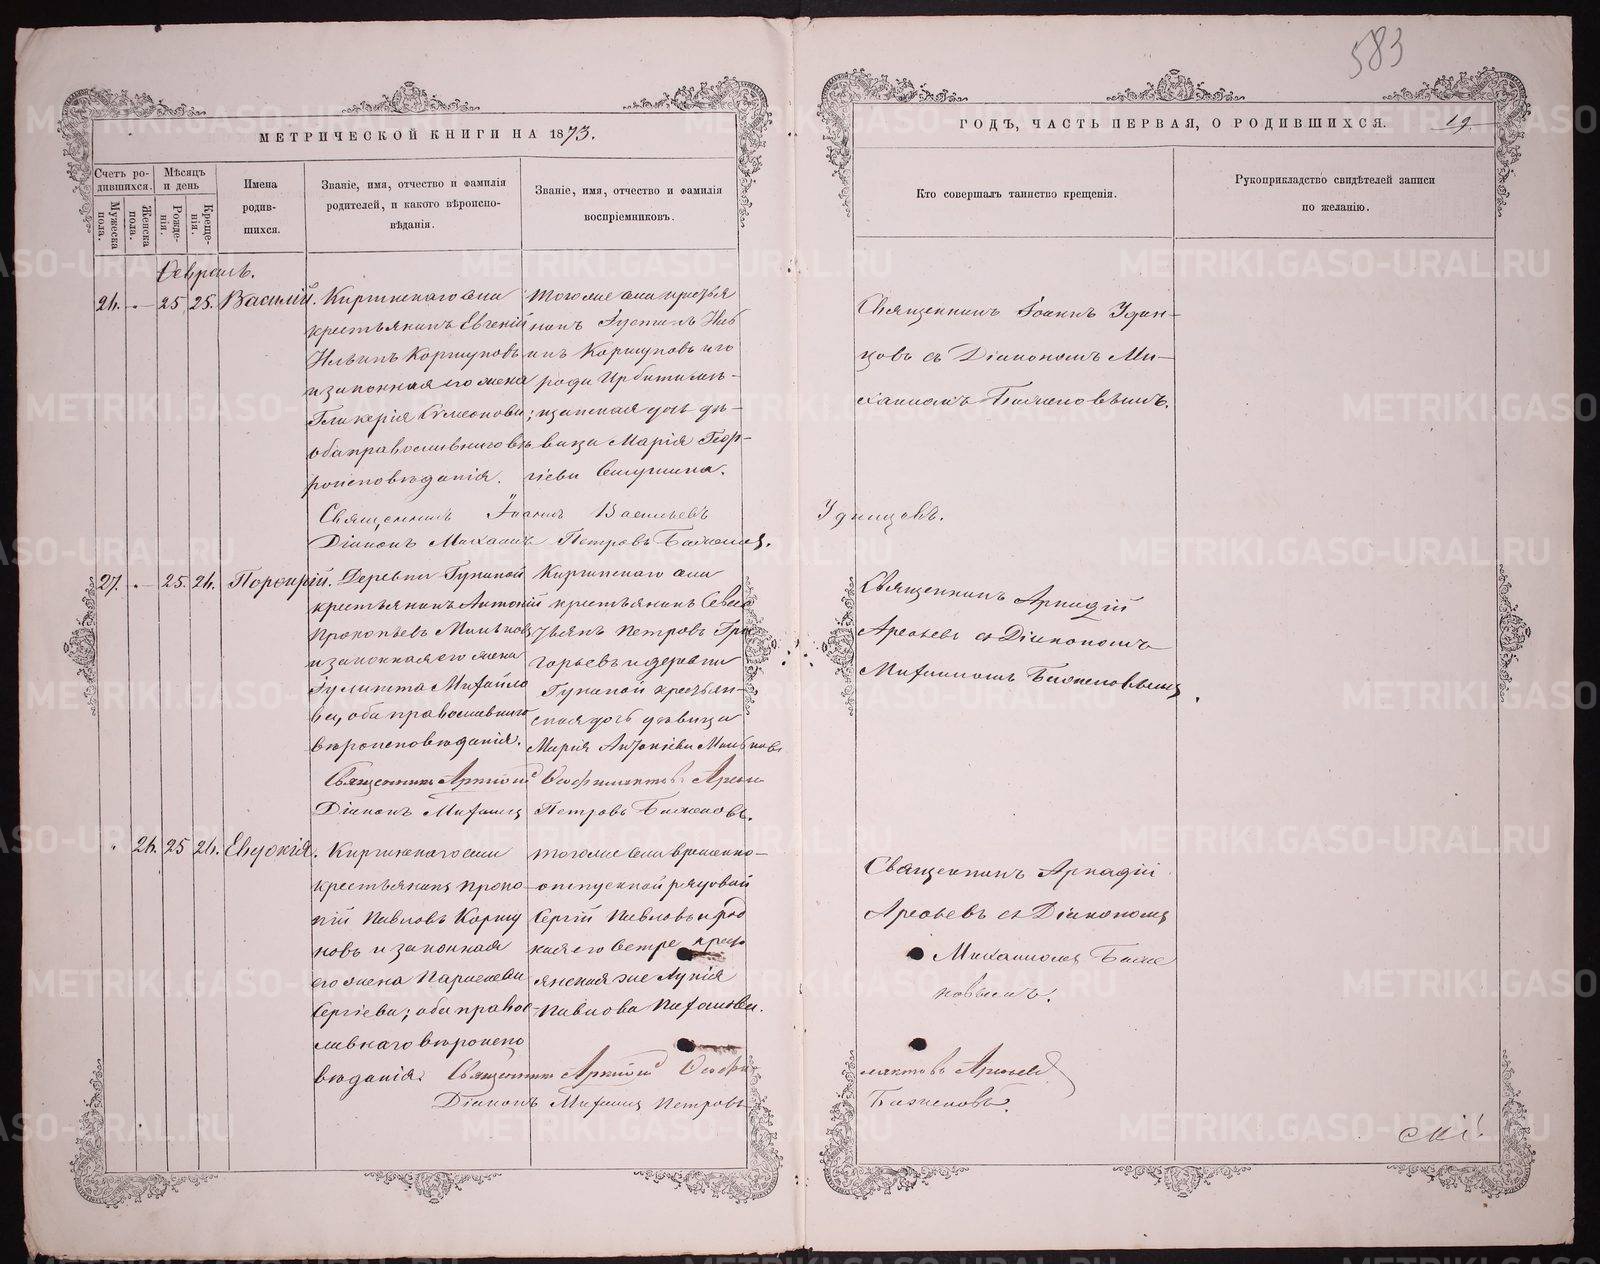 583
МЕТРИЧЕСКОЙ КНИГИ НА 1873.
ГОДЪ, ЧАСТЬ ПЕРВАЯ, О РОДИВШИХСЯ.
19.
Счетъ ро-
дившихся.
Мужеска
пола.
Женска
пола.
Мѣсяцъ
и день
Рожде-
нія.
Креще-
нія.
Имена
родив-
шихся.
Званіе, имя, отчество и фамилія
родителей, и какого вѣроиспо-
вѣданія.
Званіе, имя, отчество и фамилія
воспріемниковъ.
Кто совершалъ таинство крещенія.
Рукоприкладство свидѣтелей записи
по желанію.
Февраль.
26. 25 25. Василій.
Киргинскаго села
крестьянинъ Евгеній
Ильинъ Коршуновъ
и законная его жена
Гликерія Симеонова;
оба православнаго вѣ
роисповѣданія.
тогоже села крестья
нинъ Іустинъ Иль
инъ Коршуновъ и го
рода Ирбити мѣ-
щанская дочь дѣ-
вица Марія Геор-
гіева
Священникъ Іоаннъ Удин-
цовъ съ Діакономъ Ми-
хаиломъ Баженовымъ.
Священникъ Іоаннъ Васильевъ Удинцевъ.
Діаконъ Михаилъ Петровъ Баженовъ.
27. 25. 26. Порфирій.
Деревни Гуниной
крестьянинъ Антоній
Прокопьевъ Миньковъ
и законная его жена
Іулитта Михайло
ва, оба православнаго
вѣроисповѣданія.
Киргинскаго села
крестьянинъ Севас
тьянъ Петровъ Гри
горьевъ и деревни
Гуниной крестьян-
ская дочь дѣвица
Марія Антоніева Минькова
Священникъ Аркадій
Арефьевъ съ Діакономъ
Михаиломъ Баженовымъ.
Священникъ Аркадій Феофилактовъ
Діаконъ Михаилъ Петровъ Баженовъ.
26. 25 26. Евдокія.
Киргинскаго села
крестьянинъ Проко-
пій Павловъ Коршу
новъ и законная
его жена Параскева
Сергіева; оба правос-
лавнаго вѣроиспо
вѣданія.
тогоже села временно-
отпускной рядовой
Сергій Павловъ и род
ная его сестра кресть
янская же Лукія
Павлова
Священникъ Аркадій
Арефьевъ съ Діакономъ
Михаиломъ Баже
новымъ.
Священникъ Аркадій Феофи-
лактовъ Арефьевъ
Діаконъ Михаилъ Петровъ
Баженовъ.
METRIKI.GASO-URAL.RU